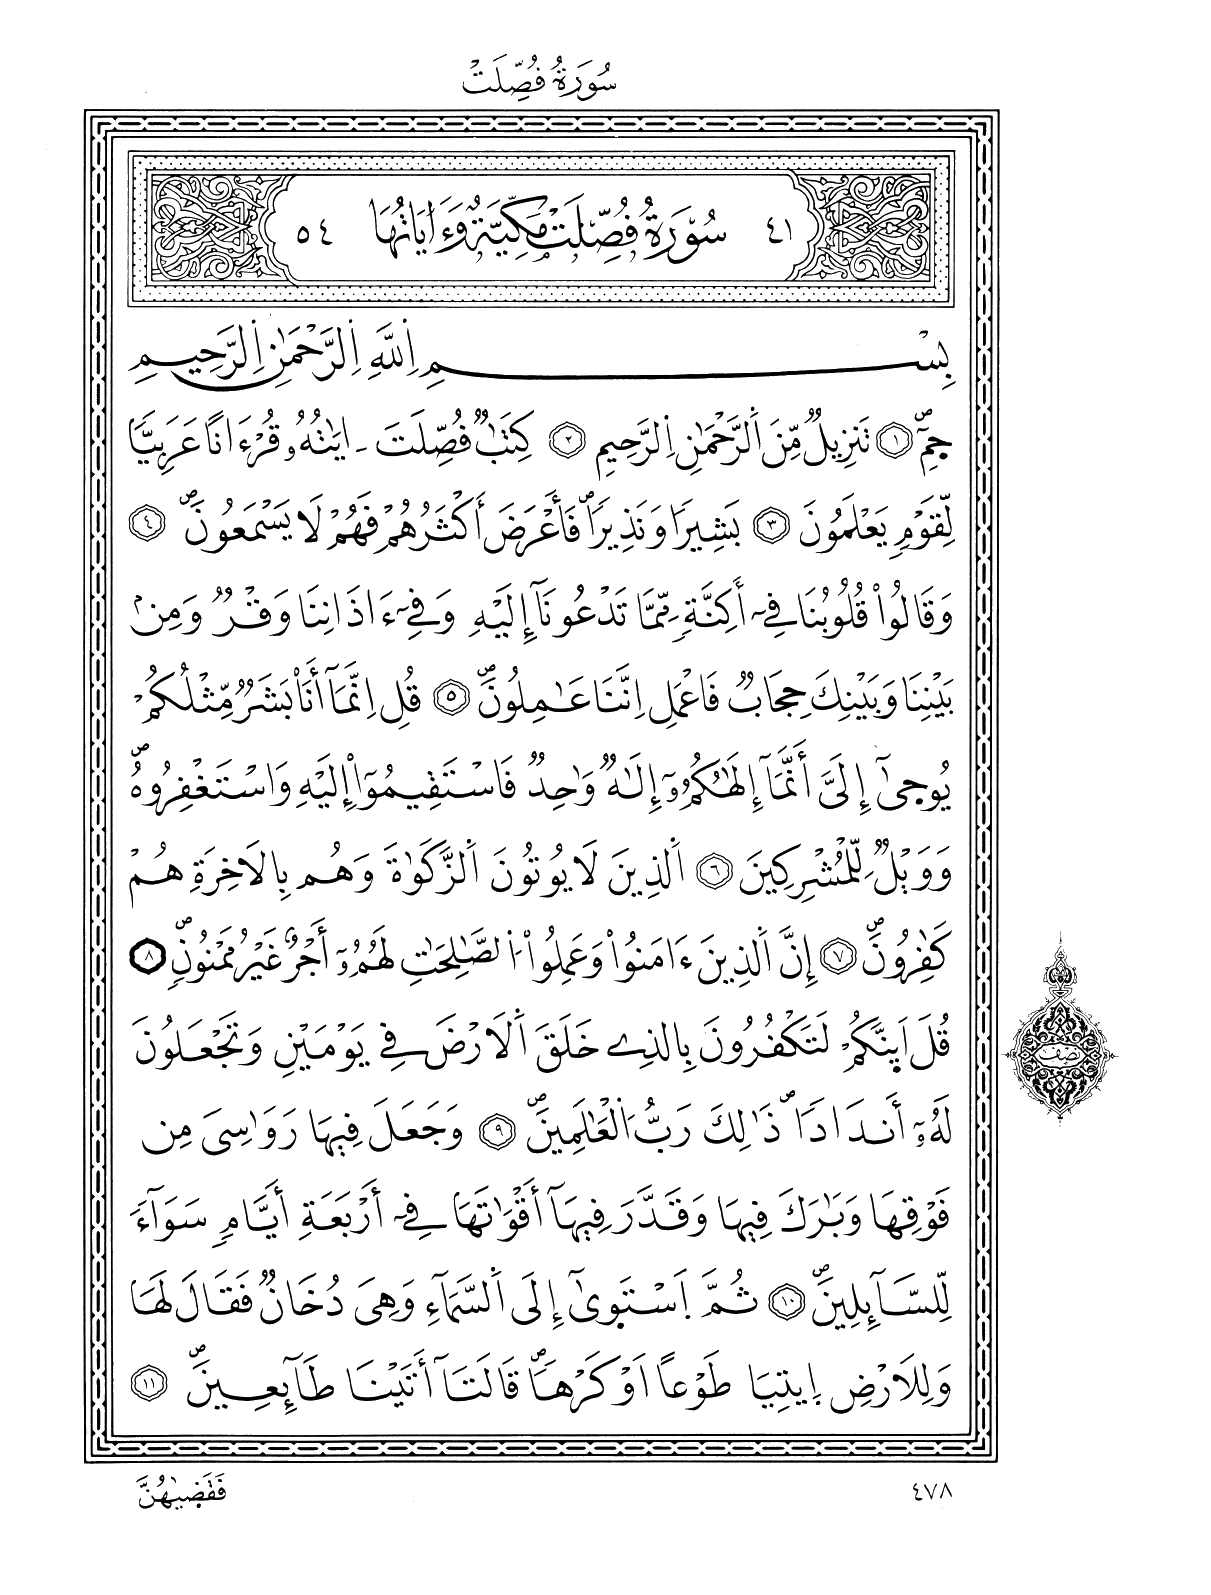 سُورَةُ فُصِّلَتْ
٤١ سُورَةُ فُصِّلَتْ مَكِّيَّةٌ وَءَايَاتُهَا ٥٤
بِسْمِ اِللَّهِ اِلرَّحْمَٰنِ اِلرَّحِيمِ
حمِٓۖ ١ تَنزِيلٌ مِّنَ اَلرَّحْمَٰنِ اِلرَّحِيمِ ٢ كِتَٰبٌ فُصِّلَتَ ـ ايَٰتُهُۥ قُرْءَاناً عَرَبِيّاً
لِّقَوْمٍ يَعْلَمُونَ ٣ بَشِيراً وَنَذِيراًۖ فَأَعْرَضَ أَكْثَرُهُمْ فَهُمْ لَا يَسْمَعُونَۖ ٤
وَقَالُواْ قُلُوبُنَا فِےٓ أَكِنَّةٍ مِّمَّا تَدْعُونَآ إِلَيْهِ وَفِےٓ ءَاذَانِنَا وَقْرٌ وَمِنۢ
بَيْنِنَا وَبَيْنِكَ حِجَابٌ فَاعْمَلِ اِنَّنَا عَٰمِلُونَۖ ٥ قُلِ اِنَّمَآ أَنَآ بَشَرٌ مِّثْلُكُمْ
يُوحىٰٓ إِلَيَّ أَنَّمَآ إِلَٰهُكُمُۥٓ إِلَٰهٌ وَٰحِدٌ فَاسْتَقِيمُوٓاْ إِلَيْهِ وَاسْتَغْفِرُوهُۖ
وَوَيْلٌ لِّلْمُشْرِكِينَ ٦ اَلذِينَ لَا يُوتُونَ اَلزَّكَوٰةَ وَهُم بِالَاخِرَةِ هُمْ
كَٰفِرُونَۖ ٧ إِنَّ اَلذِينَ ءَامَنُواْ وَعَمِلُواْ اُلصَّٰلِحَٰتِ لَهُمُۥٓ أَجْرٌ غَيْرُ مَمْنُونٍۖ ٨
قُلَ اَينَّكُمْ لَتَكْفُرُونَ بِالذِے خَلَقَ اَلَارْضَ فِے يَوْمَيْنِ وَتَجْعَلُونَ
لَهُۥٓ أَندَاداًۖ ذَٰلِكَ رَبُّ اُلْعَٰلَمِينَۖ ٩ وَجَعَلَ فِيهَا رَوَٰسِيَ مِن
فَوْقِهَا وَبَٰرَكَ فِيهَا وَقَدَّرَ فِيهَآ أَقْوَٰتَهَا فِےٓ أَرْبَعَةِ أَيَّامٍ سَوَآءً
لِّلسَّآئِلِينَۖ ١٠ ثُمَّ اَسْتَوىٰٓ إِلَى اَلسَّمَآءِ وَهِيَ دُخَانٌ فَقَالَ لَهَا
وَلِلَارْضِ اِيتِيَا طَوْعاً اَوْ كَرْهاًۖ قَالَتَآ أَتَيْنَا طَآئِعِينَۖ ١١
نصف
فَقَضٜيٰهُنَّ
٤٧٨